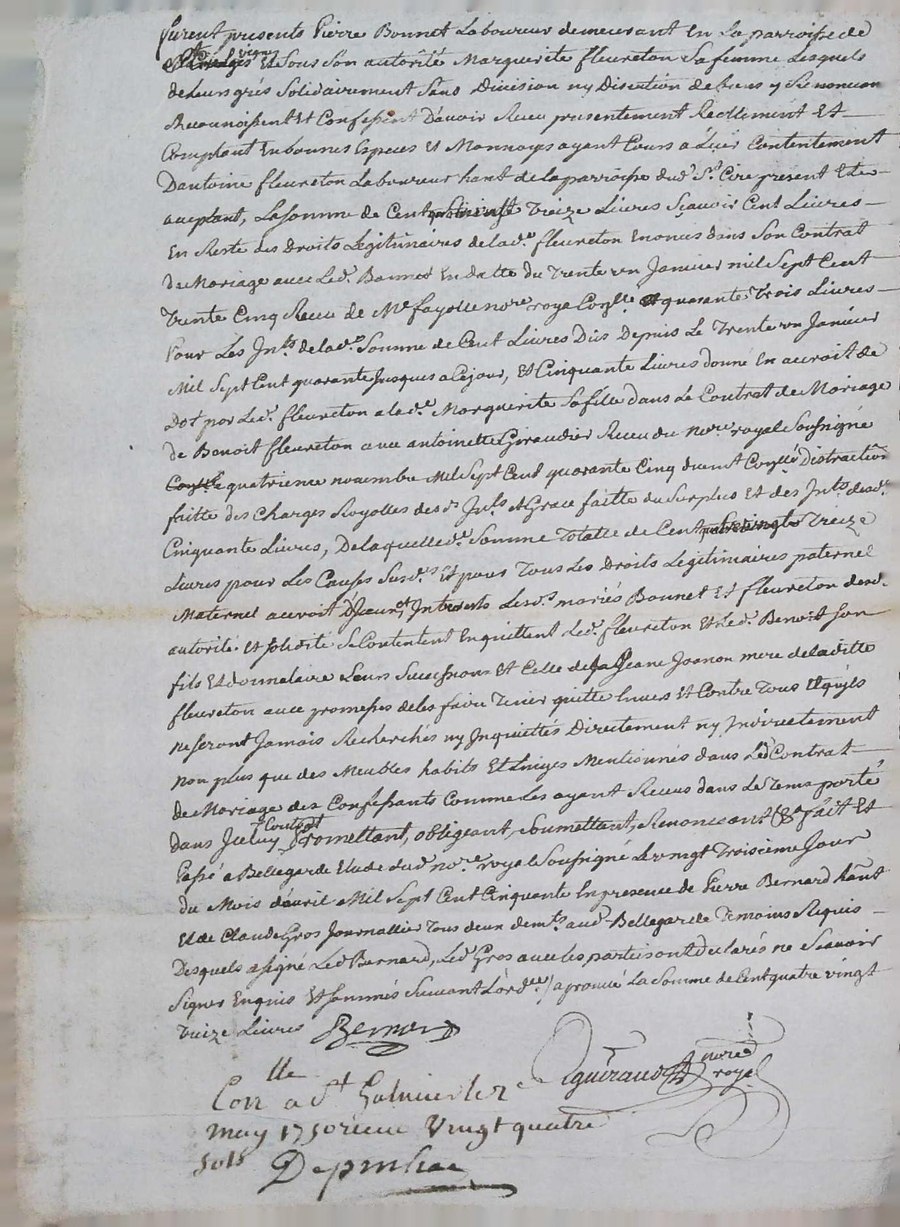 furent presents Pierre Bonnet Laboureur demeurant En La parroisse de
St Cire les vignes Et Sous Son autorité Marguerite fleureton Sa femme Lesquels
de leurs grés Solidairement Sans Division ny Discution de biens y Renoncan
Reconnoissent Et Confessent D'avoir Receu presentement Reellement Et
Comptant En bonnes Especes Et Monnoyes ayant Cours a Leur Contentement
D'antoine fleureton Laboureur hant de la parroisse dud. St. Cire present Et
acceptant, La somme de Cent Treize Livres Sçavoir Cent Livres
En Reste des Droits Legitimaires de lad.e fleureton Enoncés dans Son Contrat
de Mariage avec Led. Bonnet En datte du Trente un Janvier mil Sept Cent
Trente Cinq Receu de Me fayolle no.re royal Con.lle Et quarante Trois Livres
Pour Les Jn.ts de lad.e Somme de Cent Livres Dus Depuis Le Trente un Janvier
Mil Sept Cent quarante Jusques a Ce jour, Et Cinquante Livres donné En accroit de
Dot par Led. fleureton a lad.e Marguerite Sa fille dans Le Contrat de Mariage
de Benoit fleureton avec antoinette Giraudier Receu du no.re royal Soussigné
quatrieme novembre Mil Sept Cent quarante Cinq duemt Con.llé Distraction
faitte des Charges Royalles desd. Jn.ts Et Grace faitte du Surplus Et des Jn.ts desd.
Cinquante Livres, De laquelle d.e Somme Totalle de Cent quatre vingts Treize
Livres pour Les Causes Susd.es Et pour Tous Les Droits Legitimaires paternel
Maternel accroit Et Interests Lesd.s mariés Bonnet Et fleureton de sd.
autorité Et solidité Se Contentent En quittent Led. fleureton Et Led. Benoit Son
fils Et donnataire Leurs Successions Et Celle de Jeane Joanon mere de laditte
fleureton avec promesses de les faire Tenir quitte Envers Et Contre Tous Et qu'ils
ne seront Jamais Recherchés ny Jnquiettés Directement ny Jndirectement
non plus que des Meubles habits Et Linges Mentionnés dans Led Contrat
de Mariage des Confessants Comme Les ayant Receus dans Le Tems porté
dans Jceluy Contrat Promettant, obligeant, Soumettant, Renonceant &a fait Et
Passé a Bellegarde Etude dud. no.re royal Soussigné Le vingt Troisieme Jour
du Mois d'avril Mil Sept Cent Cinquante En presence de Pierre Bernard hant
Et de Claude Gros Journallier Tous deux dem.ts aud. Bellegarde Temoins Requis
Desquels a signé Led Bernard, Led. Gros avec les parties ont declarés ne Scavoir
Signer Enquis Et Sommés Suivant L'ord.ce / approuvé La Somme de Cent quatre vingt
Treize Livres Bernard
guiraud nore
royal
Con lle a St Galmier le
may 1750 receu Vingt quatre
sols